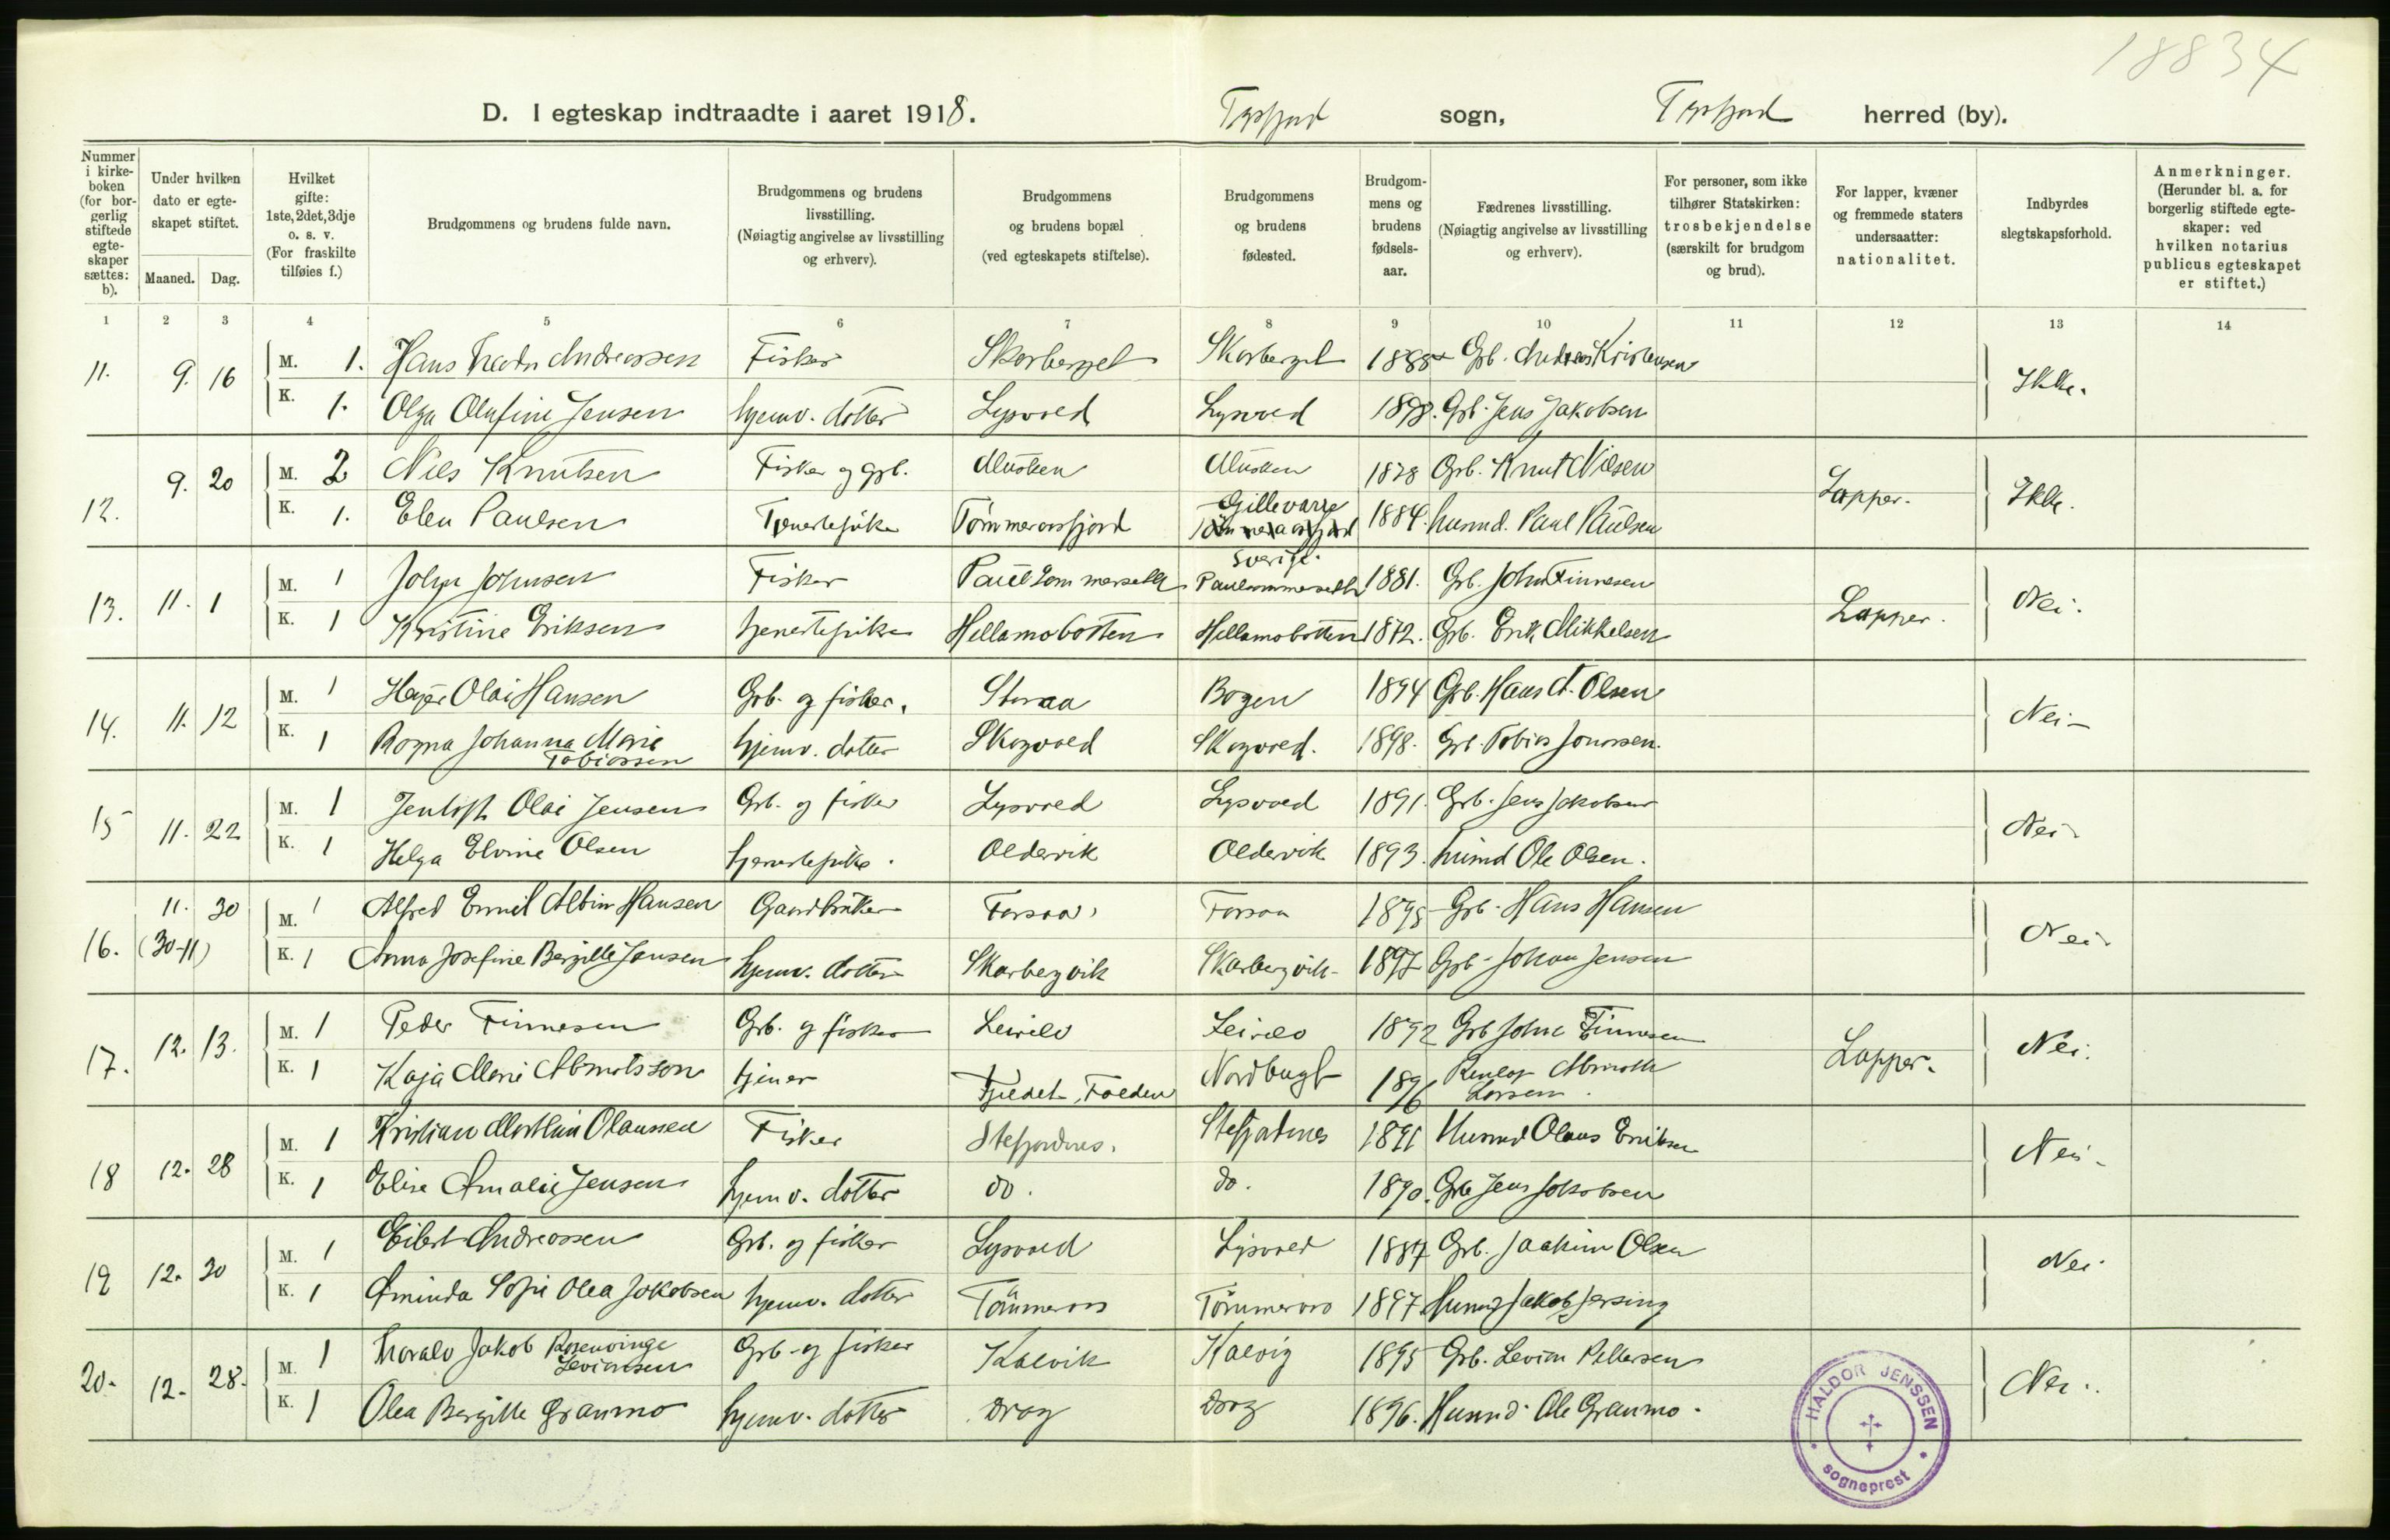 18834
D. I egteskap indtraadte i aaret 1918. Tysfjord sogn, Tysfjord herred (by).
Nummer i kirkeboken (for borgerlig stiftede egteskaper sættes: b).
Under hvilken dato er egteskapet stiftet.
Maaned. Dag.
Hvilket gifte: 1ste, 2det, 3dje o. s. v. (For fraskilte tilføies f.)
Brudgommens og brudens fulde navn.
Brudgommens og brudens livsstilling. (Nøiagtig angivelse av livsstilling og erhverv).
Brudgommens og brudens bopæl (ved egteskapets stiftelse).
Brudgommens og brudens fødested.
Brudgommens og brudens fødselsaar.
Fædrenes livsstilling. (Nøiagtig angivelse av livsstilling og erhverv).
For personer, som ikke tilhører Statskirken: trosbekjendelse (særskilt for brudgom og brud).
For lapper, kvæner og fremmede staters undersaatter: nationalitet.
Indbyrdes slegtskapsforhold.
Anmerkninger. (Herunder bl. a. for borgerlig stiftede egteskaper: ved hvilken notarius publicus egteskapet er stiftet.)
1 2 3 4 5 6 7 8 9 10 11 12 13 14
11. 9. 16 M. 1. Hans Andreassen Fisker Skarberget Skarberget 1888 Grb. Andreas Kristensen Ikke.
K. 1. Olga Olufine Jensen hjemv. dotter Lysvold Lysvold 1898. Grb. Jens Jakobsen
12. 9. 20 M. 2 Nils Knutsen Fisker og grb. Musken Musken 1878 Grb. Knut Nilsen Lapper. Ikke.
K. 1. Elen Paulsen Tjenestepike Tømmeraasfjord Gjillevarre Sverige. 1884. husmd. Paul Paulsen
13. 11. 1 M. 1 John Johnsen Fisker Paulsommersæth Paulsommersæth 1881. Grb. John Finnesen Lapper. Nei.
K. 1 Kristine Eriksen tjenestepike Hellamobotten Hellamobotten 1872. Grb. Erik Mikkelsen
14. 11. 12 M. 1 Olai Hansen Grb. og fisker. Storaa Bogen 1894 Grb. Hans A. Olsen Nei
K. 1 Ragna Johanna Marie Tobiassen hjemv. dotter Skogvold Skogvold. 1898. Grb. Tobias Jonassen.
15 11. 22 M. 1 Jentoft Olai Jensen Grb. og fisker Lysvold Lysvold 1891. Grb. Jens Jakobsen Nei
K. 1 Helga Elvine Olsen tjenestepike. Oldervik Oldervik 1893. husmd Ole Olsen.
16. 11. 30 (30-11) M. 1 Alfred Emil Albin Hansen Gaardbruker Forsaa Forsaa 1895 Grb. Hans Hansen Nei
K. 1 Anna Josefine Bergitte Jensen hjemv. dotter Skarbergvik Skarbergvik 1897 Grb. Johan Jensen
17. 12. 13. M. 1 Peder Finnesen Grb. og fisker 1892 Grb John Finnesen Lapper. Nei.
K. 1 Kaja Marie tjener Folden Nordbugt 1896 Larsen.
18 12. 28 M. 1 Kristian Olaussen Fisker Stefjordnes. Stefjordnes 1891 Husmd Olaus Eriksen Nei
K. 1 Elise Amalie Jensen hjemv. dotter do. do. 1890. Grb Jens Jakobsen
19 12. 30 M. 1 Eilert Andreassen Grb. og fisker Lysvold Lysvold 1887 Grb. Joakim Olsen Nei
K. 1 Aminda Sofie Olea Jakobsen hjemv. dotter Tømmeraas Tømmeraas 1897. Husmd Jakob
20. 12. 28. M. 1 Jakob Rosenvinge Levionsen Grb. og fisker Kalvik Kalvig 1895 Grb. Levion Pettersen Nei.
K. 1 Olea Bergitte Graumo hjemv. dotter Drag Drag 1896. Husmd. Ole Graumo.
HALDOR JENSSEN
sogneprest